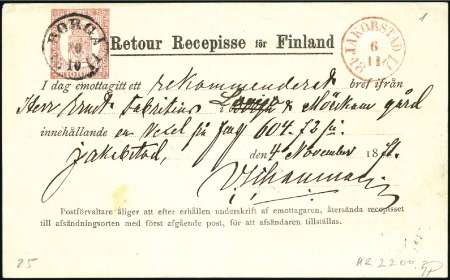 BORGÅ
10
1
Retour Recepisse för Finland
JAKOBSTAD
6
11
I dag emottagit ett rekommenderat bref ifrån
Herr Ernst Fabritius Mörskom gård
innehållande en vexel på 604.72
Jakobstad, den 4 November 18
Postförvaltare åligger att efter erhållen underskrift af emottagaren, återsända recepisset
till afsändningsorten med först afgående post, för att afsändaren tillställas.
25
HR 2200